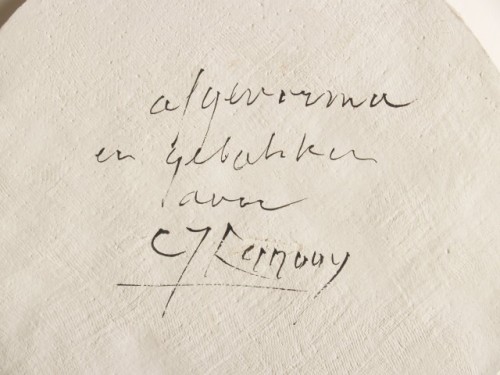 afgevormd
en gebakken
door
CJ Lanooy